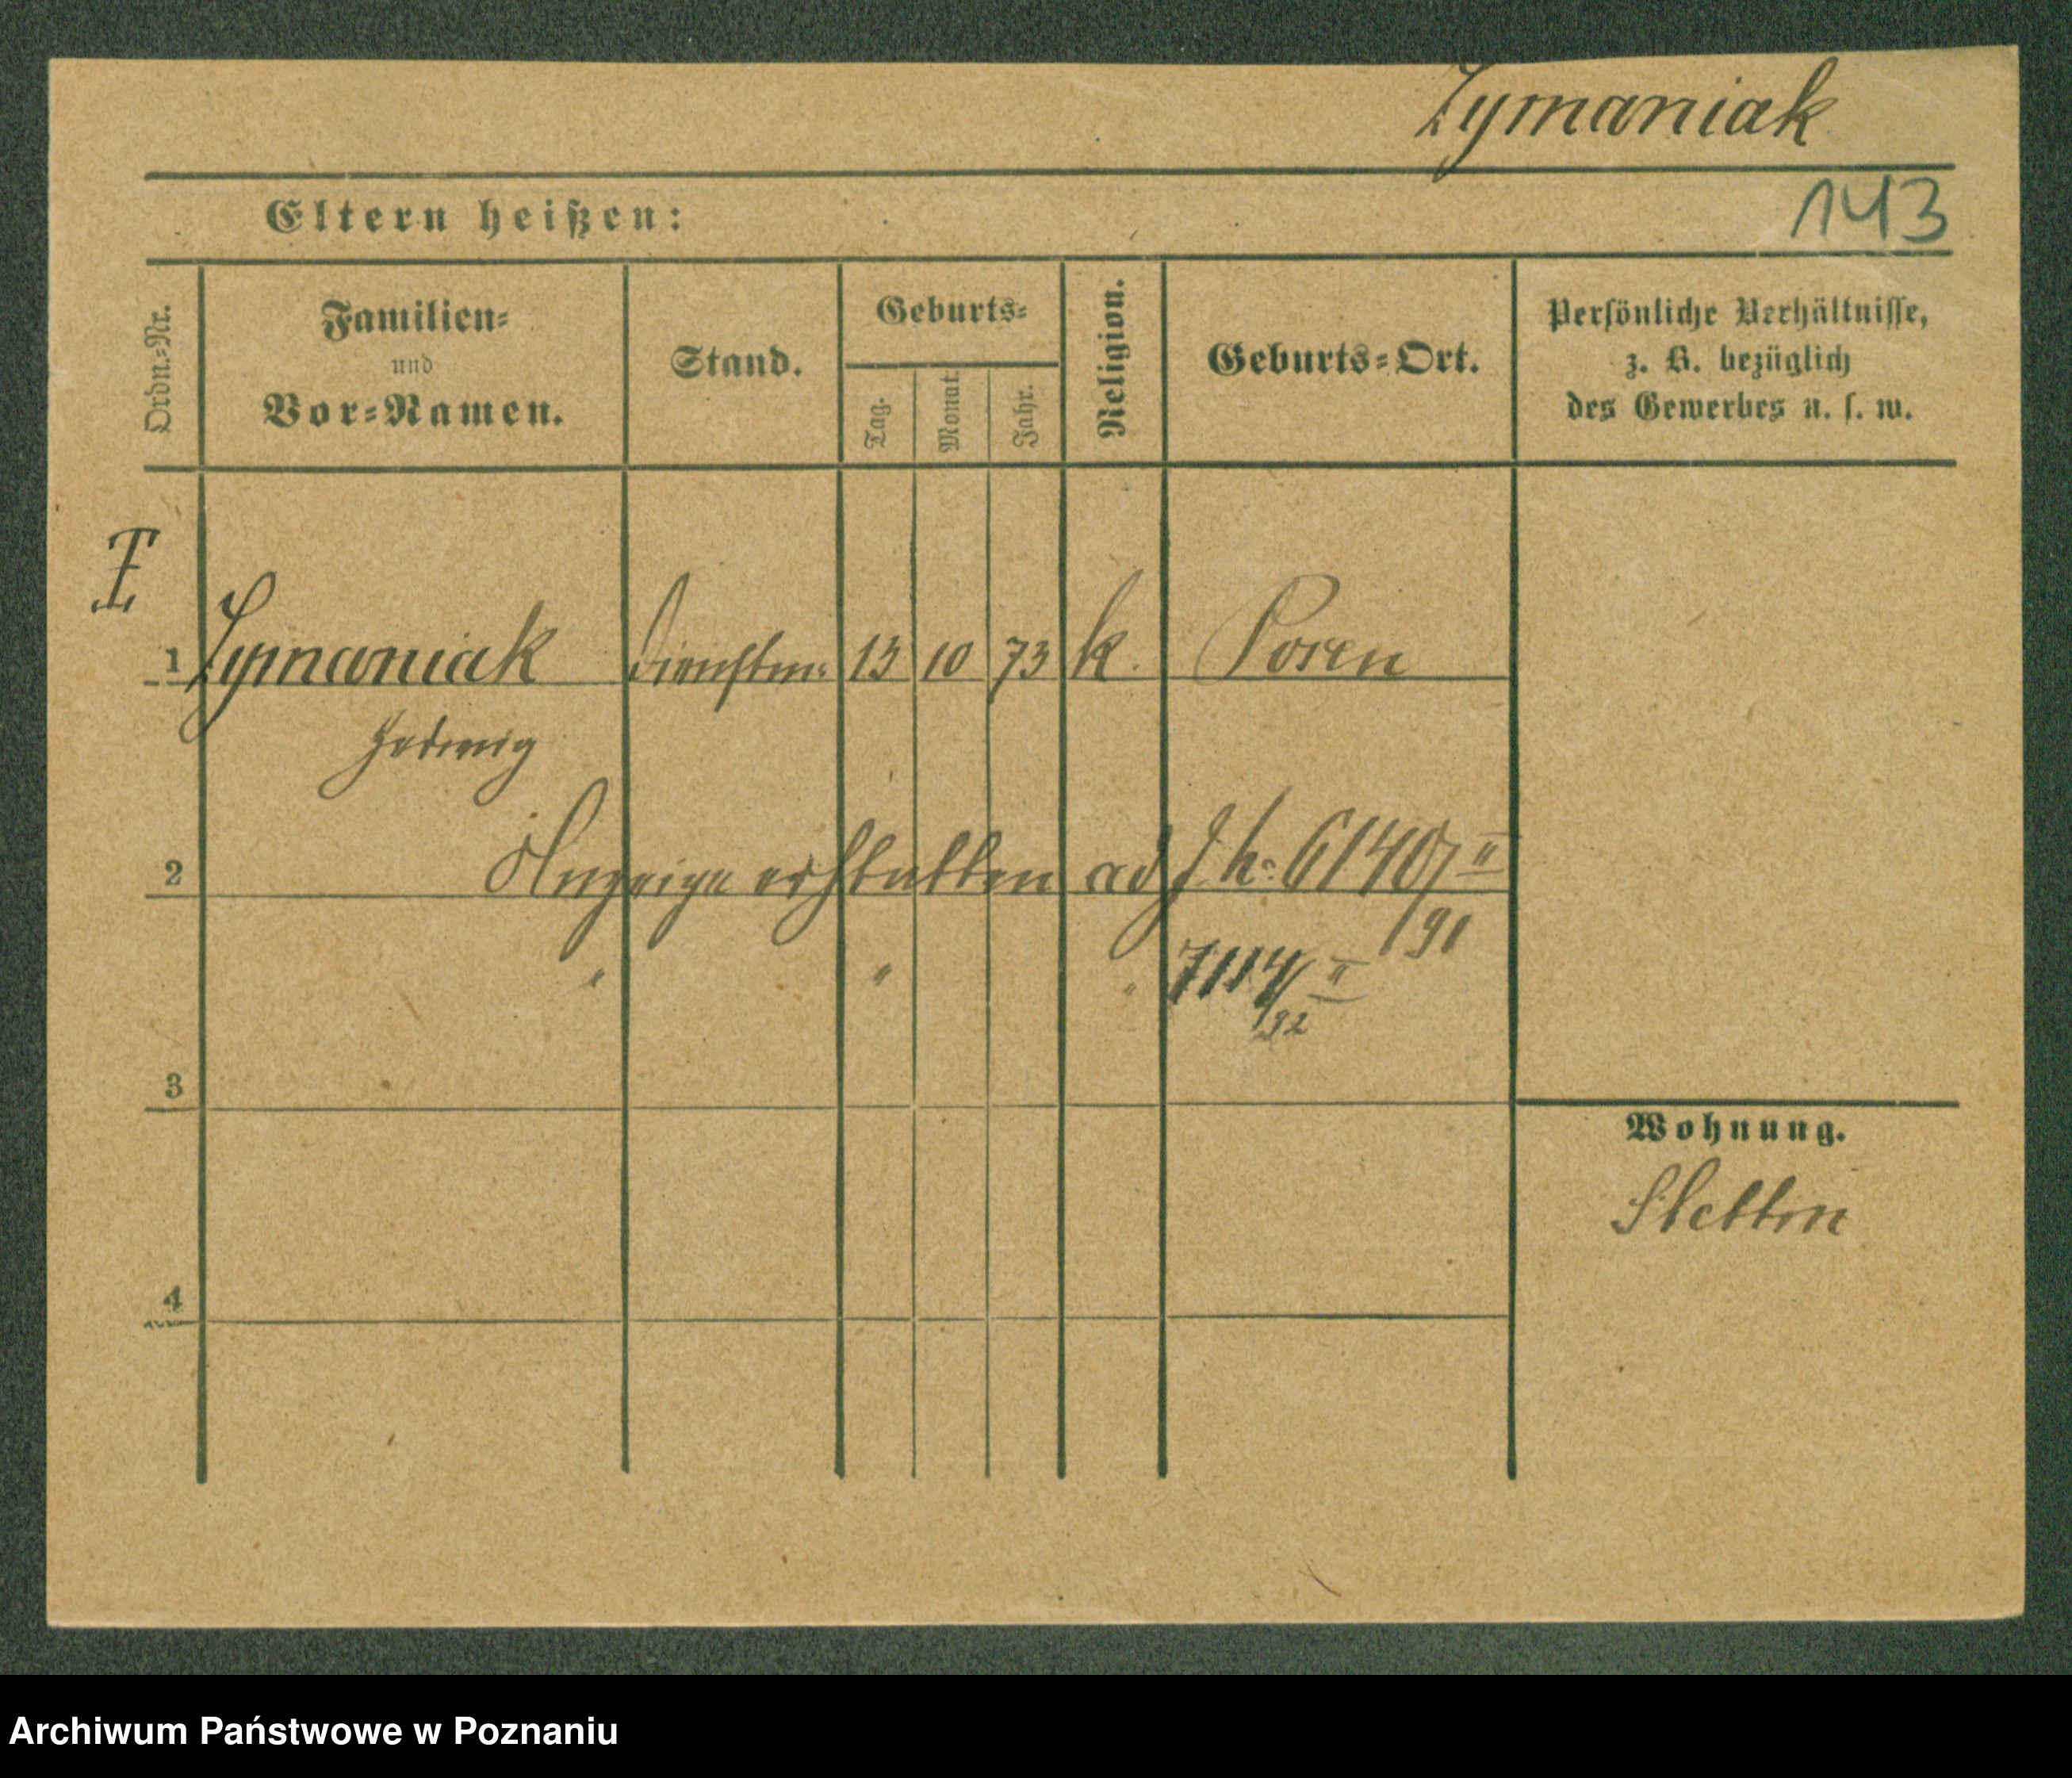 Zymaniak
143
Eltern heißen:
Ordn.-Nr.
Familien-
und
Vor-Namen.
Stand.
Geburts-
Tag.
Monat.
Jahr.
Religion.
Geburts-Ort.
Persönliche Verhältnisse,
z. B. bezüglich
des Gewerbes u. s. w.
1 Zymaniak 13 10 73 k. Posen
Hedwig
2 Anzeige erstatten ad J. 6140/II
91
" " " 7114/II
92
3
Wohnung.
Stettin
4
Archiwum Państwowe w Poznaniu